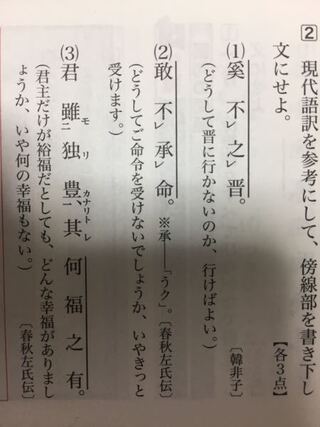 2 現代語訳を参考にして、傍線部を書き下し
文にせよ。【各3点】
(1) 奚不㆑之㆑晋。
(どうして晋に行かないのか、行けばよい。)〔韓非子〕
(2) 敢不㆑承㆑命。※承――「うク」。〔春秋左氏伝〕
(どうしてご命令を受けないでしょうか、いやきっと
受けます。)
(3) 君雖㆓モ独リ豊㆒カナリト、其レ何福之有。
(君主だけが裕福だとしても、どんな幸福がありまし
ょうか、いや何の幸福もない。)〔春秋左氏伝〕